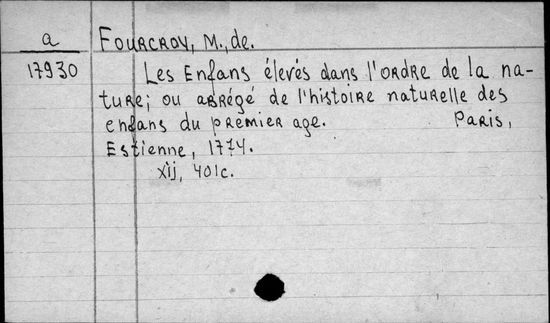 a
FOURCROY, M., de.
17930
Les Enfans élevés dans l'ordre de la na-
ture; ou abrégé de l'histoire naturelle des
enfans du premier age. Paris,
Estienne, 1774.
xij, 401c.